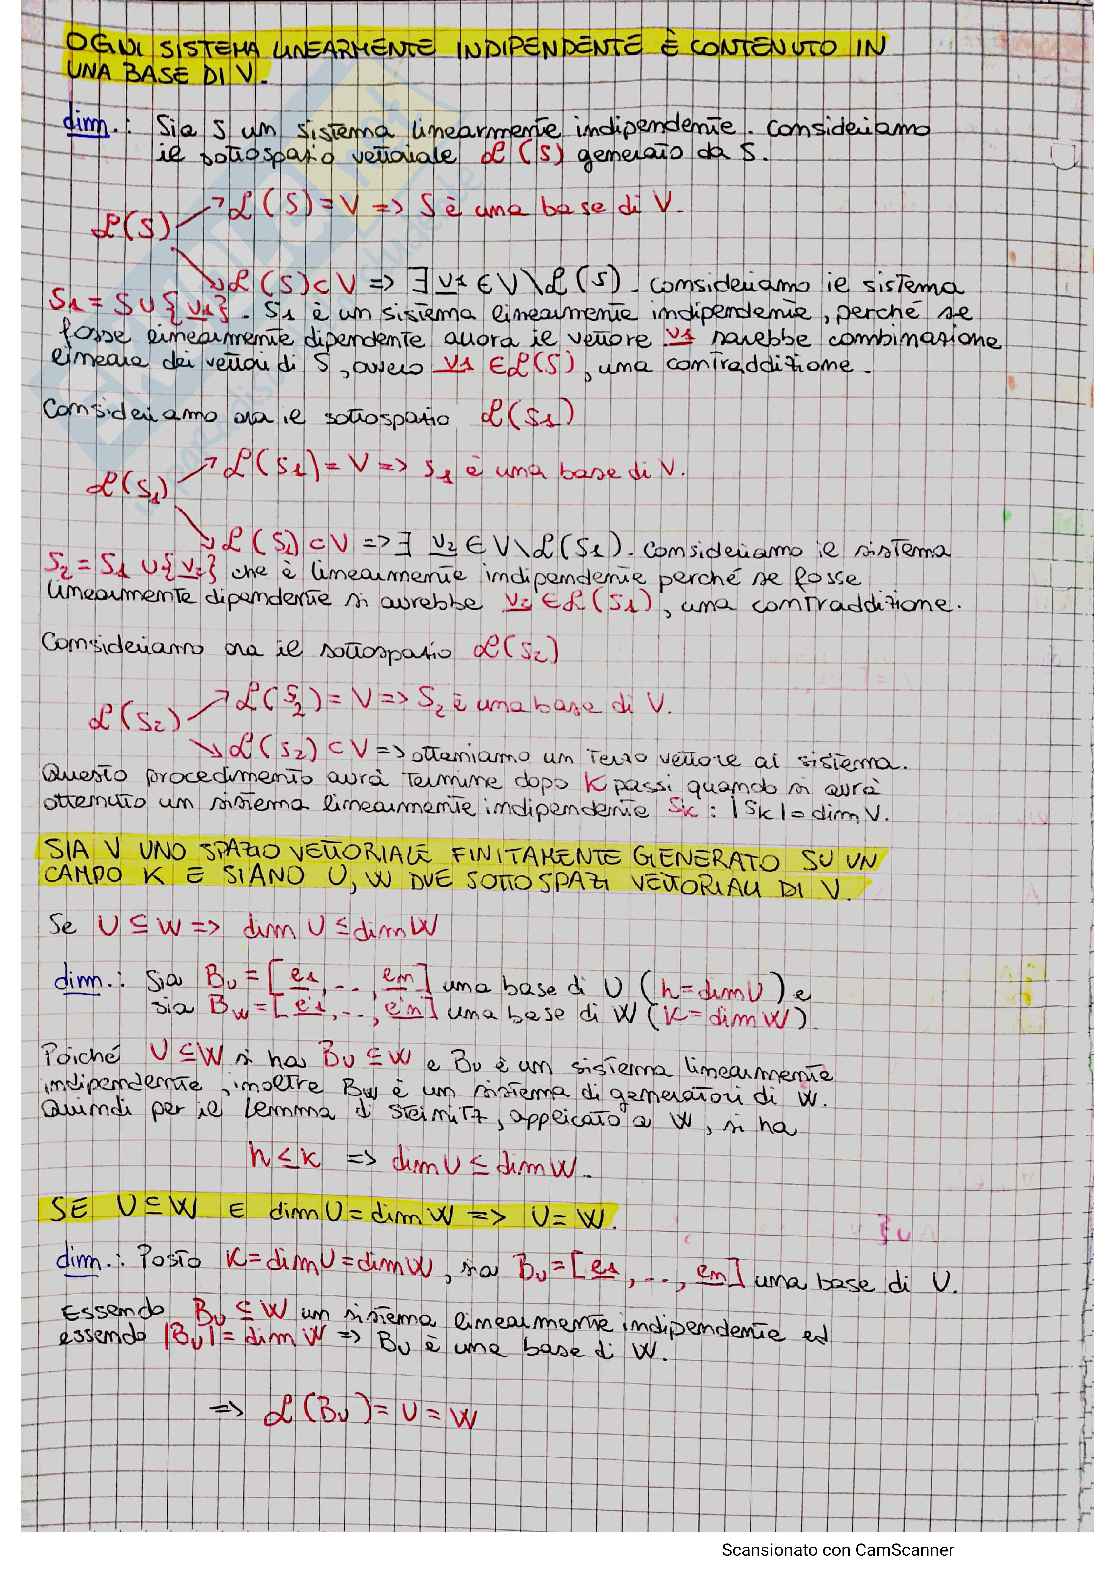 OGNI SISTEMA LINEARMENTE INDIPENDENTE È CONTENUTO IN
UNA BASE DI V.
dim.: Sia S un sistema linearmente indipendente. Consideriamo
il sottospazio vettoriale ℒ(S) generato da S.
ℒ(S) ↗ ℒ(S) = V => S è una base di V.
↘ ℒ(S) ⊂ V => ∃ v1 ∈ V\ℒ(S). Consideriamo il sistema
S1 = S ∪ {v1}. S1 è un sistema linearmente indipendente, perché se
fosse linearmente dipendente allora il vettore v1 sarebbe combinazione
lineare dei vettori di S, ovvero v1 ∈ ℒ(S), una contraddizione.
Consideriamo ora il sottospazio ℒ(S1)
ℒ(S1) ↗ ℒ(S1) = V => S1 è una base di V.
↘ ℒ(S1) ⊂ V => ∃ v2 ∈ V\ℒ(S1). Consideriamo il sistema
S2 = S1 ∪ {v2} che è linearmente indipendente perché se fosse
linearmente dipendente si avrebbe v2 ∈ ℒ(S1), una contraddizione.
Consideriamo ora il sottospazio ℒ(S2)
ℒ(S2) ↗ ℒ(S2) = V => S2 è una base di V.
↘ ℒ(S2) ⊂ V => otteniamo un terzo vettore al sistema.
Questo procedimento avrà termine dopo K passi, quando si avrà
ottenuto un sistema linearmente indipendente SK : |SK| = dim V.
SIA V UNO SPAZIO VETTORIALE FINITAMENTE GENERATO SU UN
CAMPO K E SIANO U, W DUE SOTTOSPAZI VETTORIALI DI V.
Se U ⊆ W => dim U ≤ dim W
dim.: Sia BU = [e1, .., en] una base di U (h = dim U) e
sia BW = [e'1, .., e'n] una base di W (K = dim W).
Poiché U ⊆ W si ha BU ⊆ W e BU è un sistema linearmente
indipendente, inoltre BW è un sistema di generatori di W.
Quindi per il Lemma di Steinitz, applicato a W, si ha
h ≤ k => dim U ≤ dim W.
SE U ⊆ W E dim U = dim W => U = W.
dim.: Posto K = dim U = dim W, sia BU = [e1, .., en] una base di U.
Essendo BU ⊆ W un sistema linearmente indipendente ed
essendo |BU| = dim W => BU è una base di W.
=> ℒ(BU) = U = W
Scansionato con CamScanner